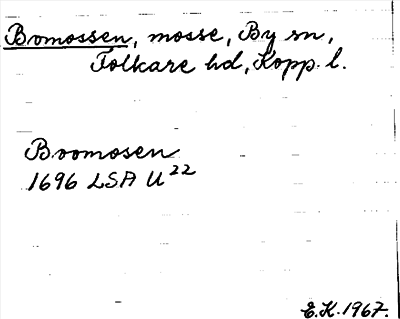 Bomossen, mosse, By sn,
Folkare hd, Kopp. l.
Boomosen
1696 LSA U22
E.K. 1967.